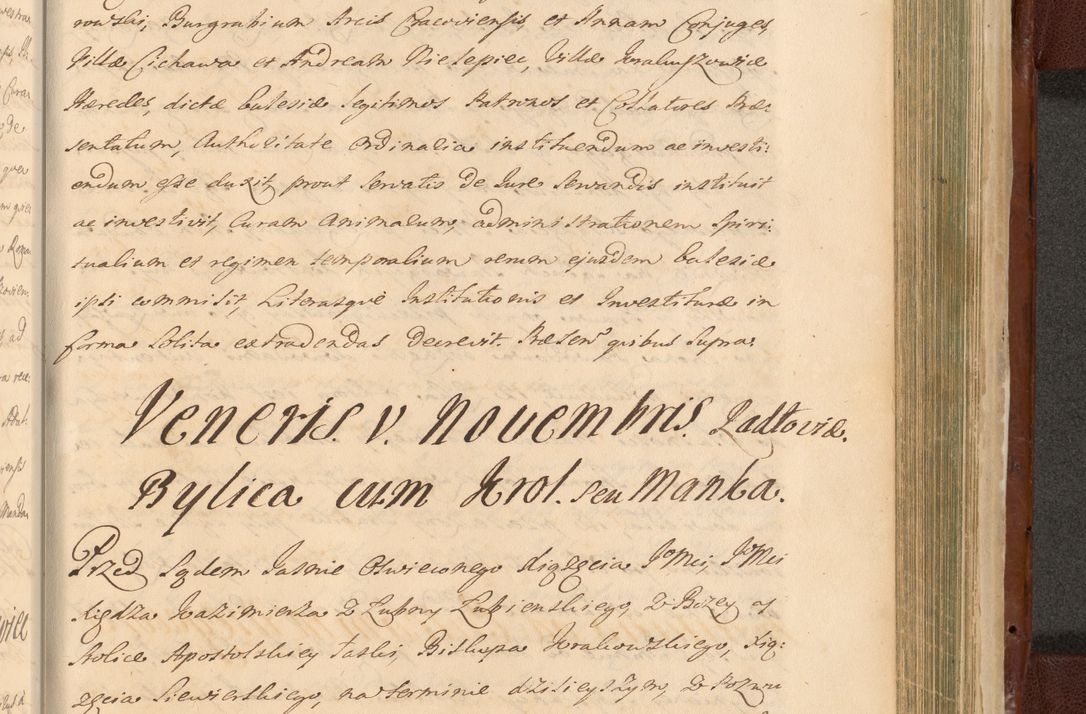 rowski, Burgrabium Arcis Cracoviensis, et Annam Conjuges,
Villæ Cichawa et Andream Nielepiec, Villæ
Hæredes, dictæ Eulesiæ legitimos Patronos et Collatores Præ:
sentatum, Authoritate Ordinaria instituendum ac investi:
endum esse duxit, prout servatis De Jure Servandis instituit
ac investivit, Curam Animarum, administrationem Spiri:
tualium et regimen temporalium rerum ejusdem Eulesiæ
ipsi commisit, Literasque Institutionis et Investituræ in
forma Solita extradendas decrevit. Præsen. quibus Supra.
Veneris. V. Novembris. Radłoviæ.
Bylica cum Krol. seu Manka.
Przed Sądem Jasnie Oswieconego Xiązęcia JoMci, JoMci
Xiędza Kazimierza z Łubny Łubienskiego, z Bozey et
Stolice Apostolskiey łaski, Biskupa Krakowskiego, Xią:
zęcia Siewierskiego, na terminie dzisieyszym, z Pozwu